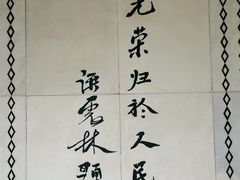 光荣归於人民
谭震林题